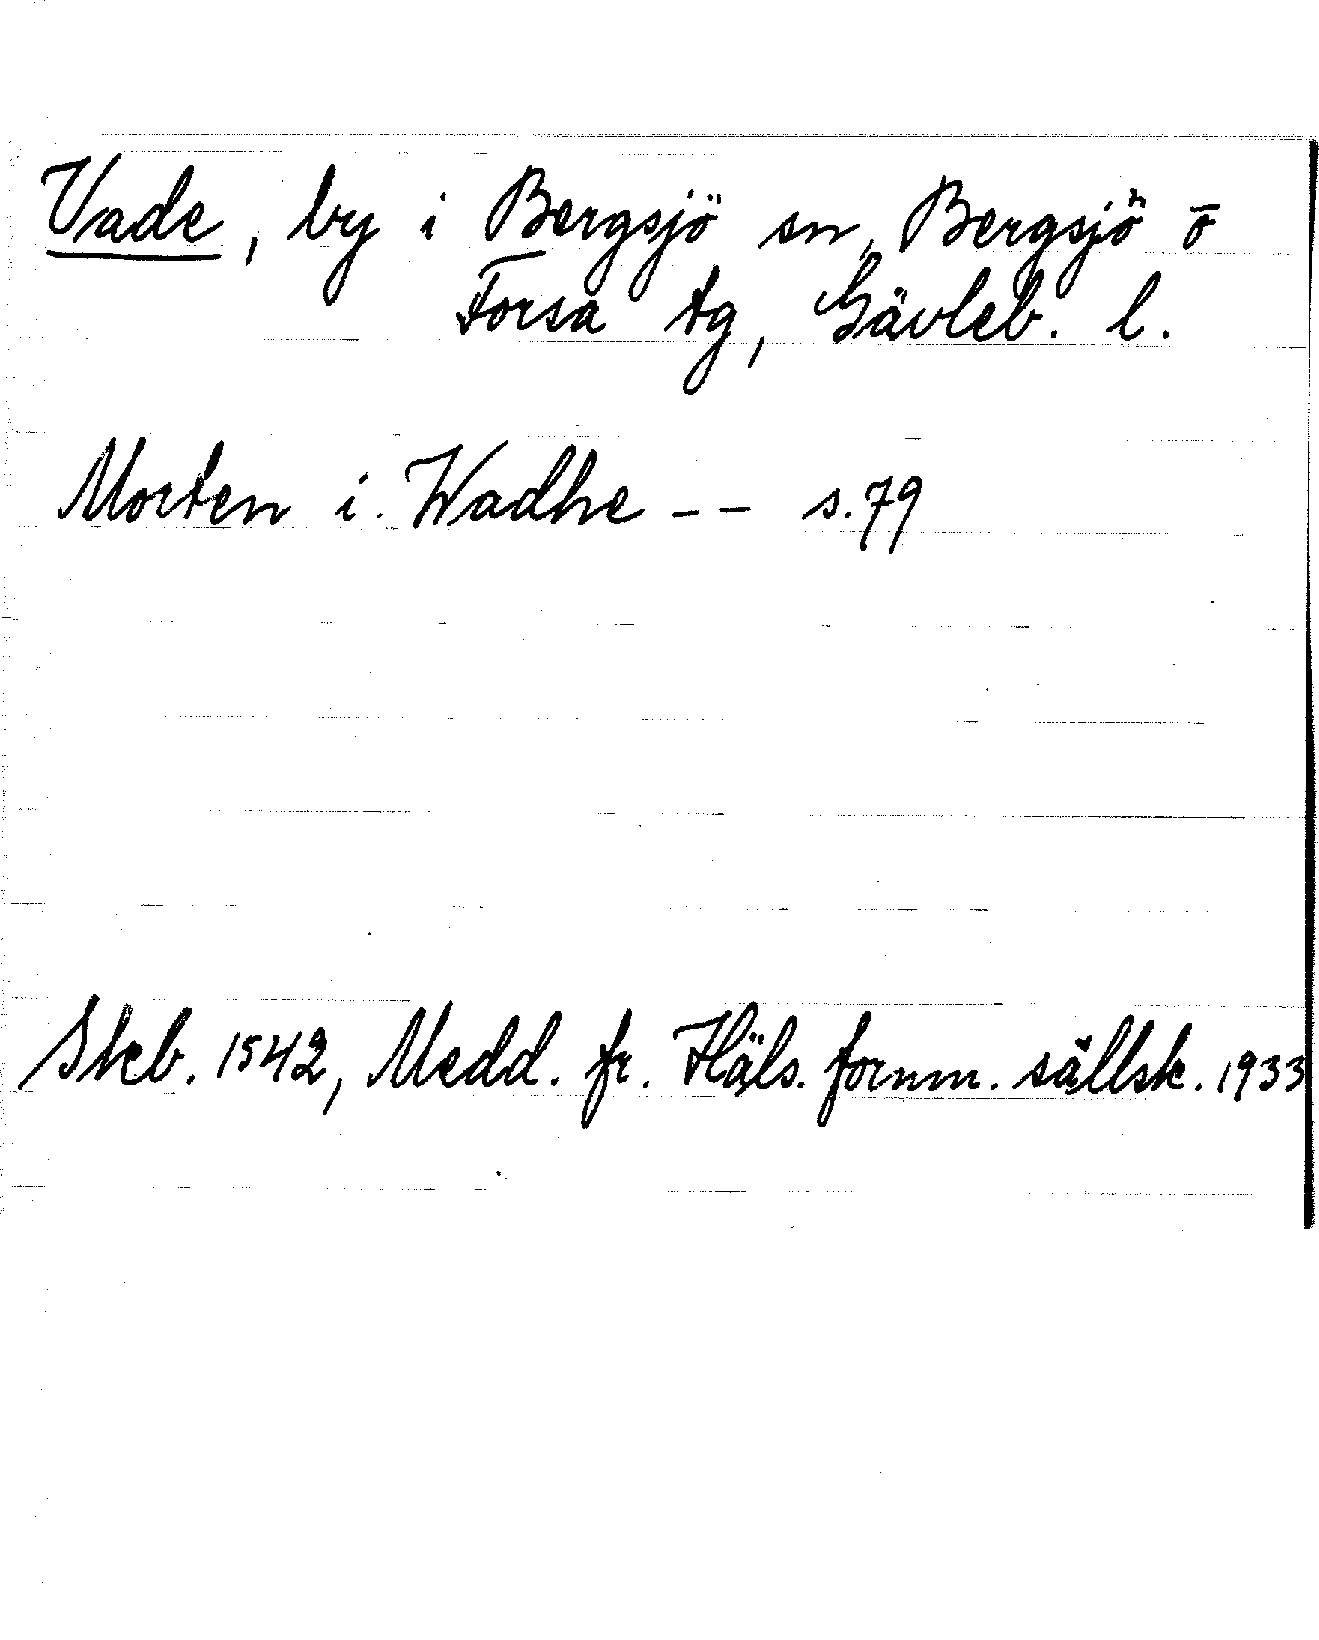 Vade, by i Bergsjö sn, Bergsjö o̅
Forsa tg, Gävleb. l.
Morten i Wadhe -- s. 79
Skb. 1542, Medd. fr. Häls. fornm. sällsk. 1933